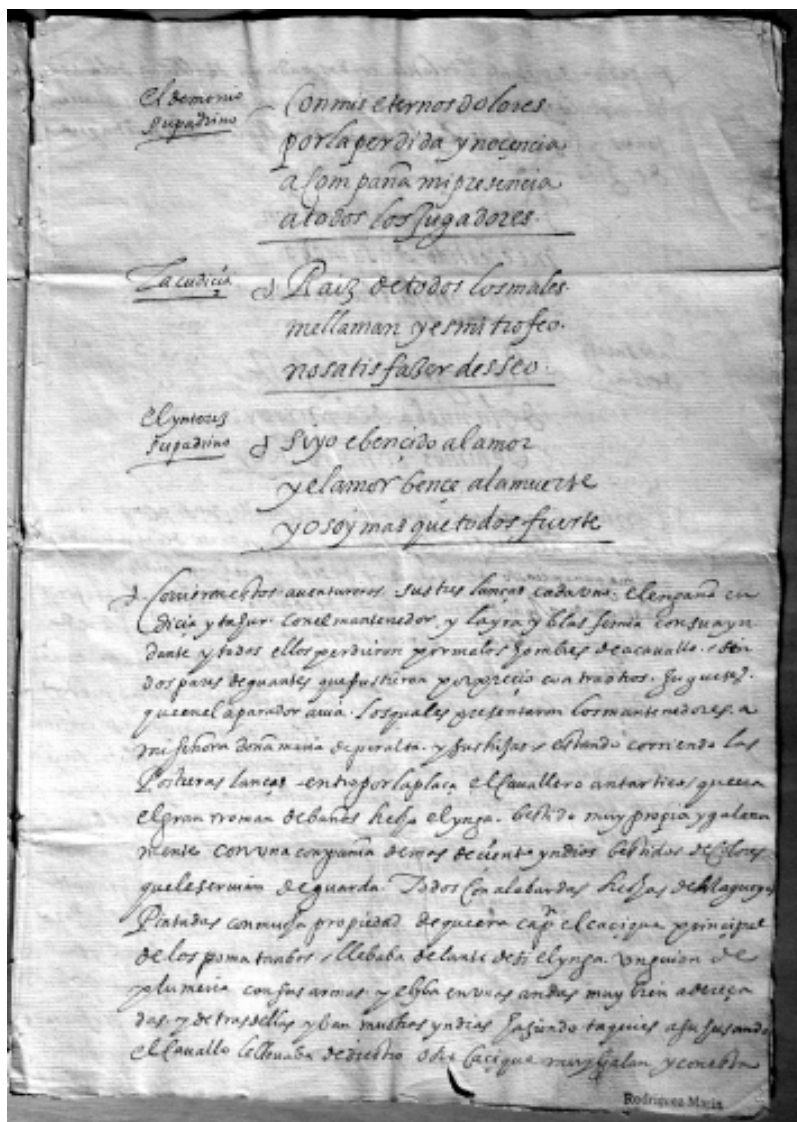 El demonio
su padrino
Con mis eternos dolores
por la perdida ynoçencia
acompaña mi presencia
a todos los jugadores.
La cudicia
Raiz de todos los males
me llaman y es mi trofeo
no satisfazer desseo.
El ynteres
su padrino
Si yo e bençido al amor
y el amor bençe a la muerte
yo soy mas que todos fuerte
Corrieron estos auentureros sus tres lanças cada vno. el engaño cu
dicia y tahur con el mantenedor, y la yra y blasfemia con su ayu
dante y todos ellos perdieron por malos hombres de a cauallo. 
dos pares de guantes que pusieron por preçio con otros juguetes
que en el aparador auia. los quales presentaron los mantenedores a
mi señora doña maria de peralta y sus hijas estando corriendo las
Postreras lanças entro por la plaça el Cauallero antartico que era
el gran rroman de baños hecho el ynga. bestido muy propia y galana
mente con vna conpañia de mas de cient yndios bestidos de colores
que le seruian de guarda. Todos con alabardas hechas de maguey
Pintadas con mucha propiedad de que era capn el caçique prinçipal
de los poma tanbos llebaba delante de si el ynga vn guion de
plumeria con sus armas y el yba en vnas andas muy bien adereça
das. y detras dellas yban muchos yndios haziendo taquies a su usança
el Cauallo le lleuaba de diestro otro caçique muy galan y con otra
Rodríguez Marín